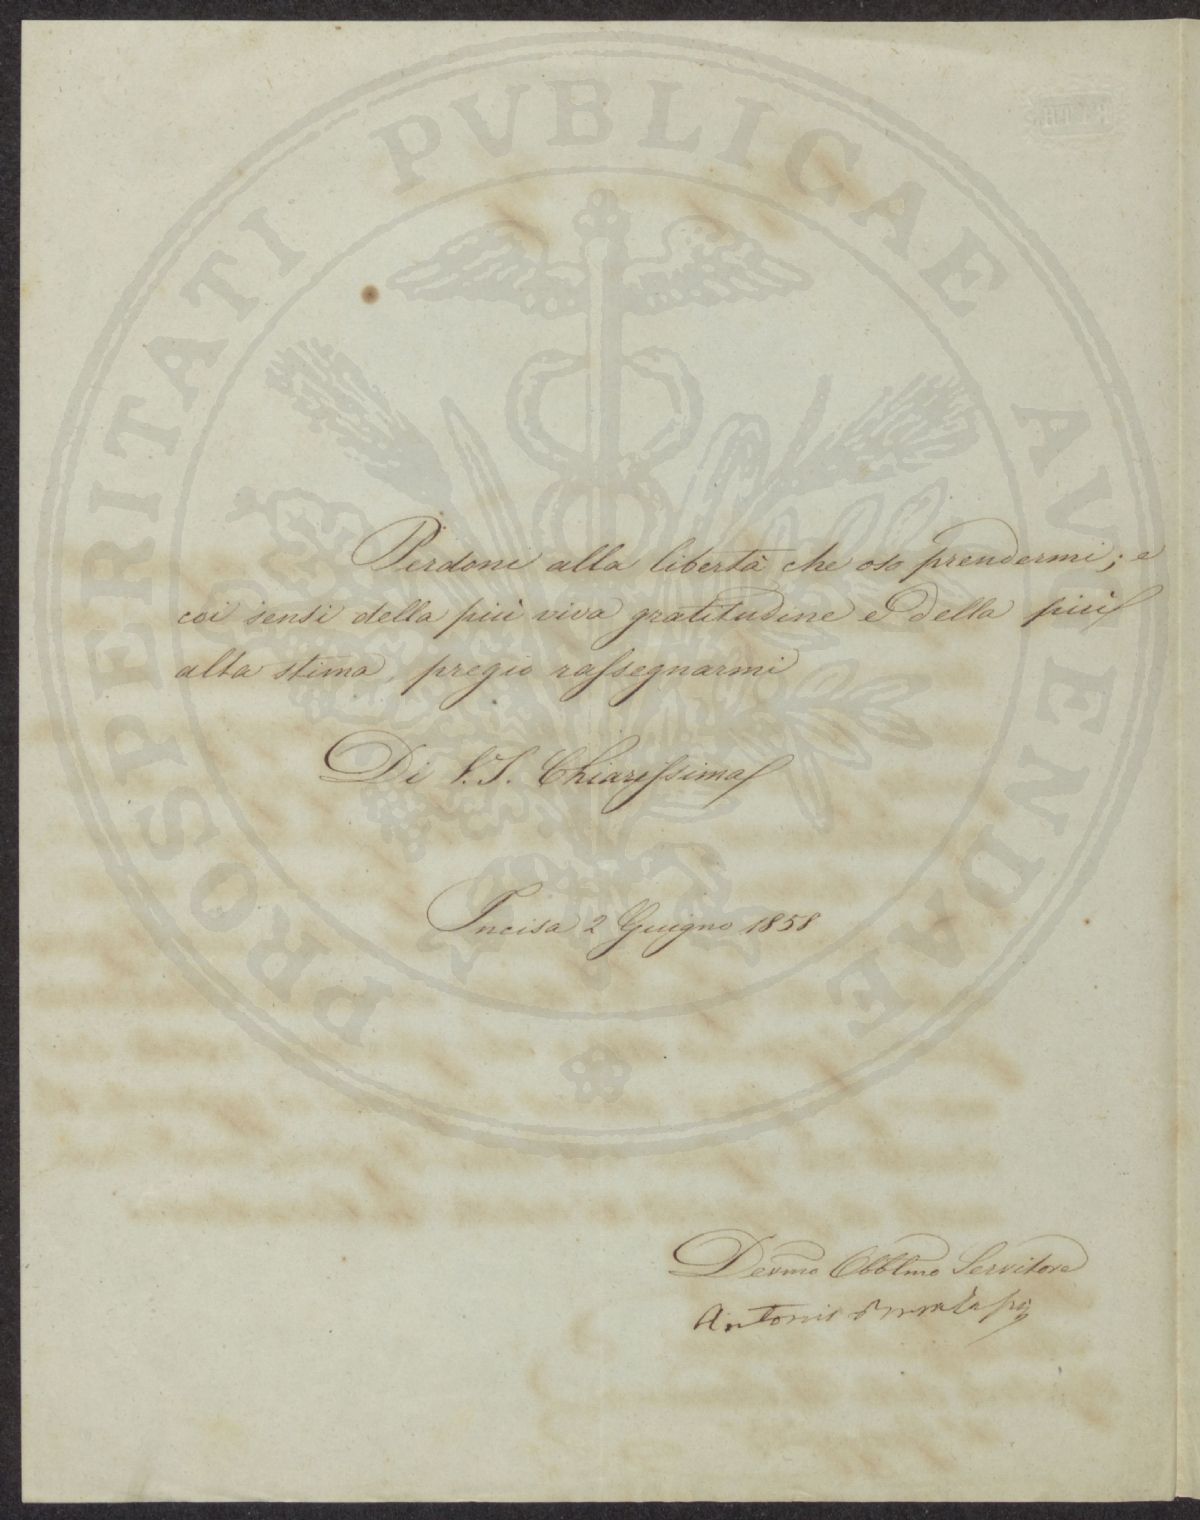 PROSPERITATI PVBLICAE AVGENDAE
Perdoni alla libertà che oso prendermi; e
coi sensi della più viva gratitudine e della più
alta stima, pregio rassegnarmi
Di V. S. Chiarissima
Incisa 2 Giugno 1858
Devmo Obblmo Servitore
Antonio